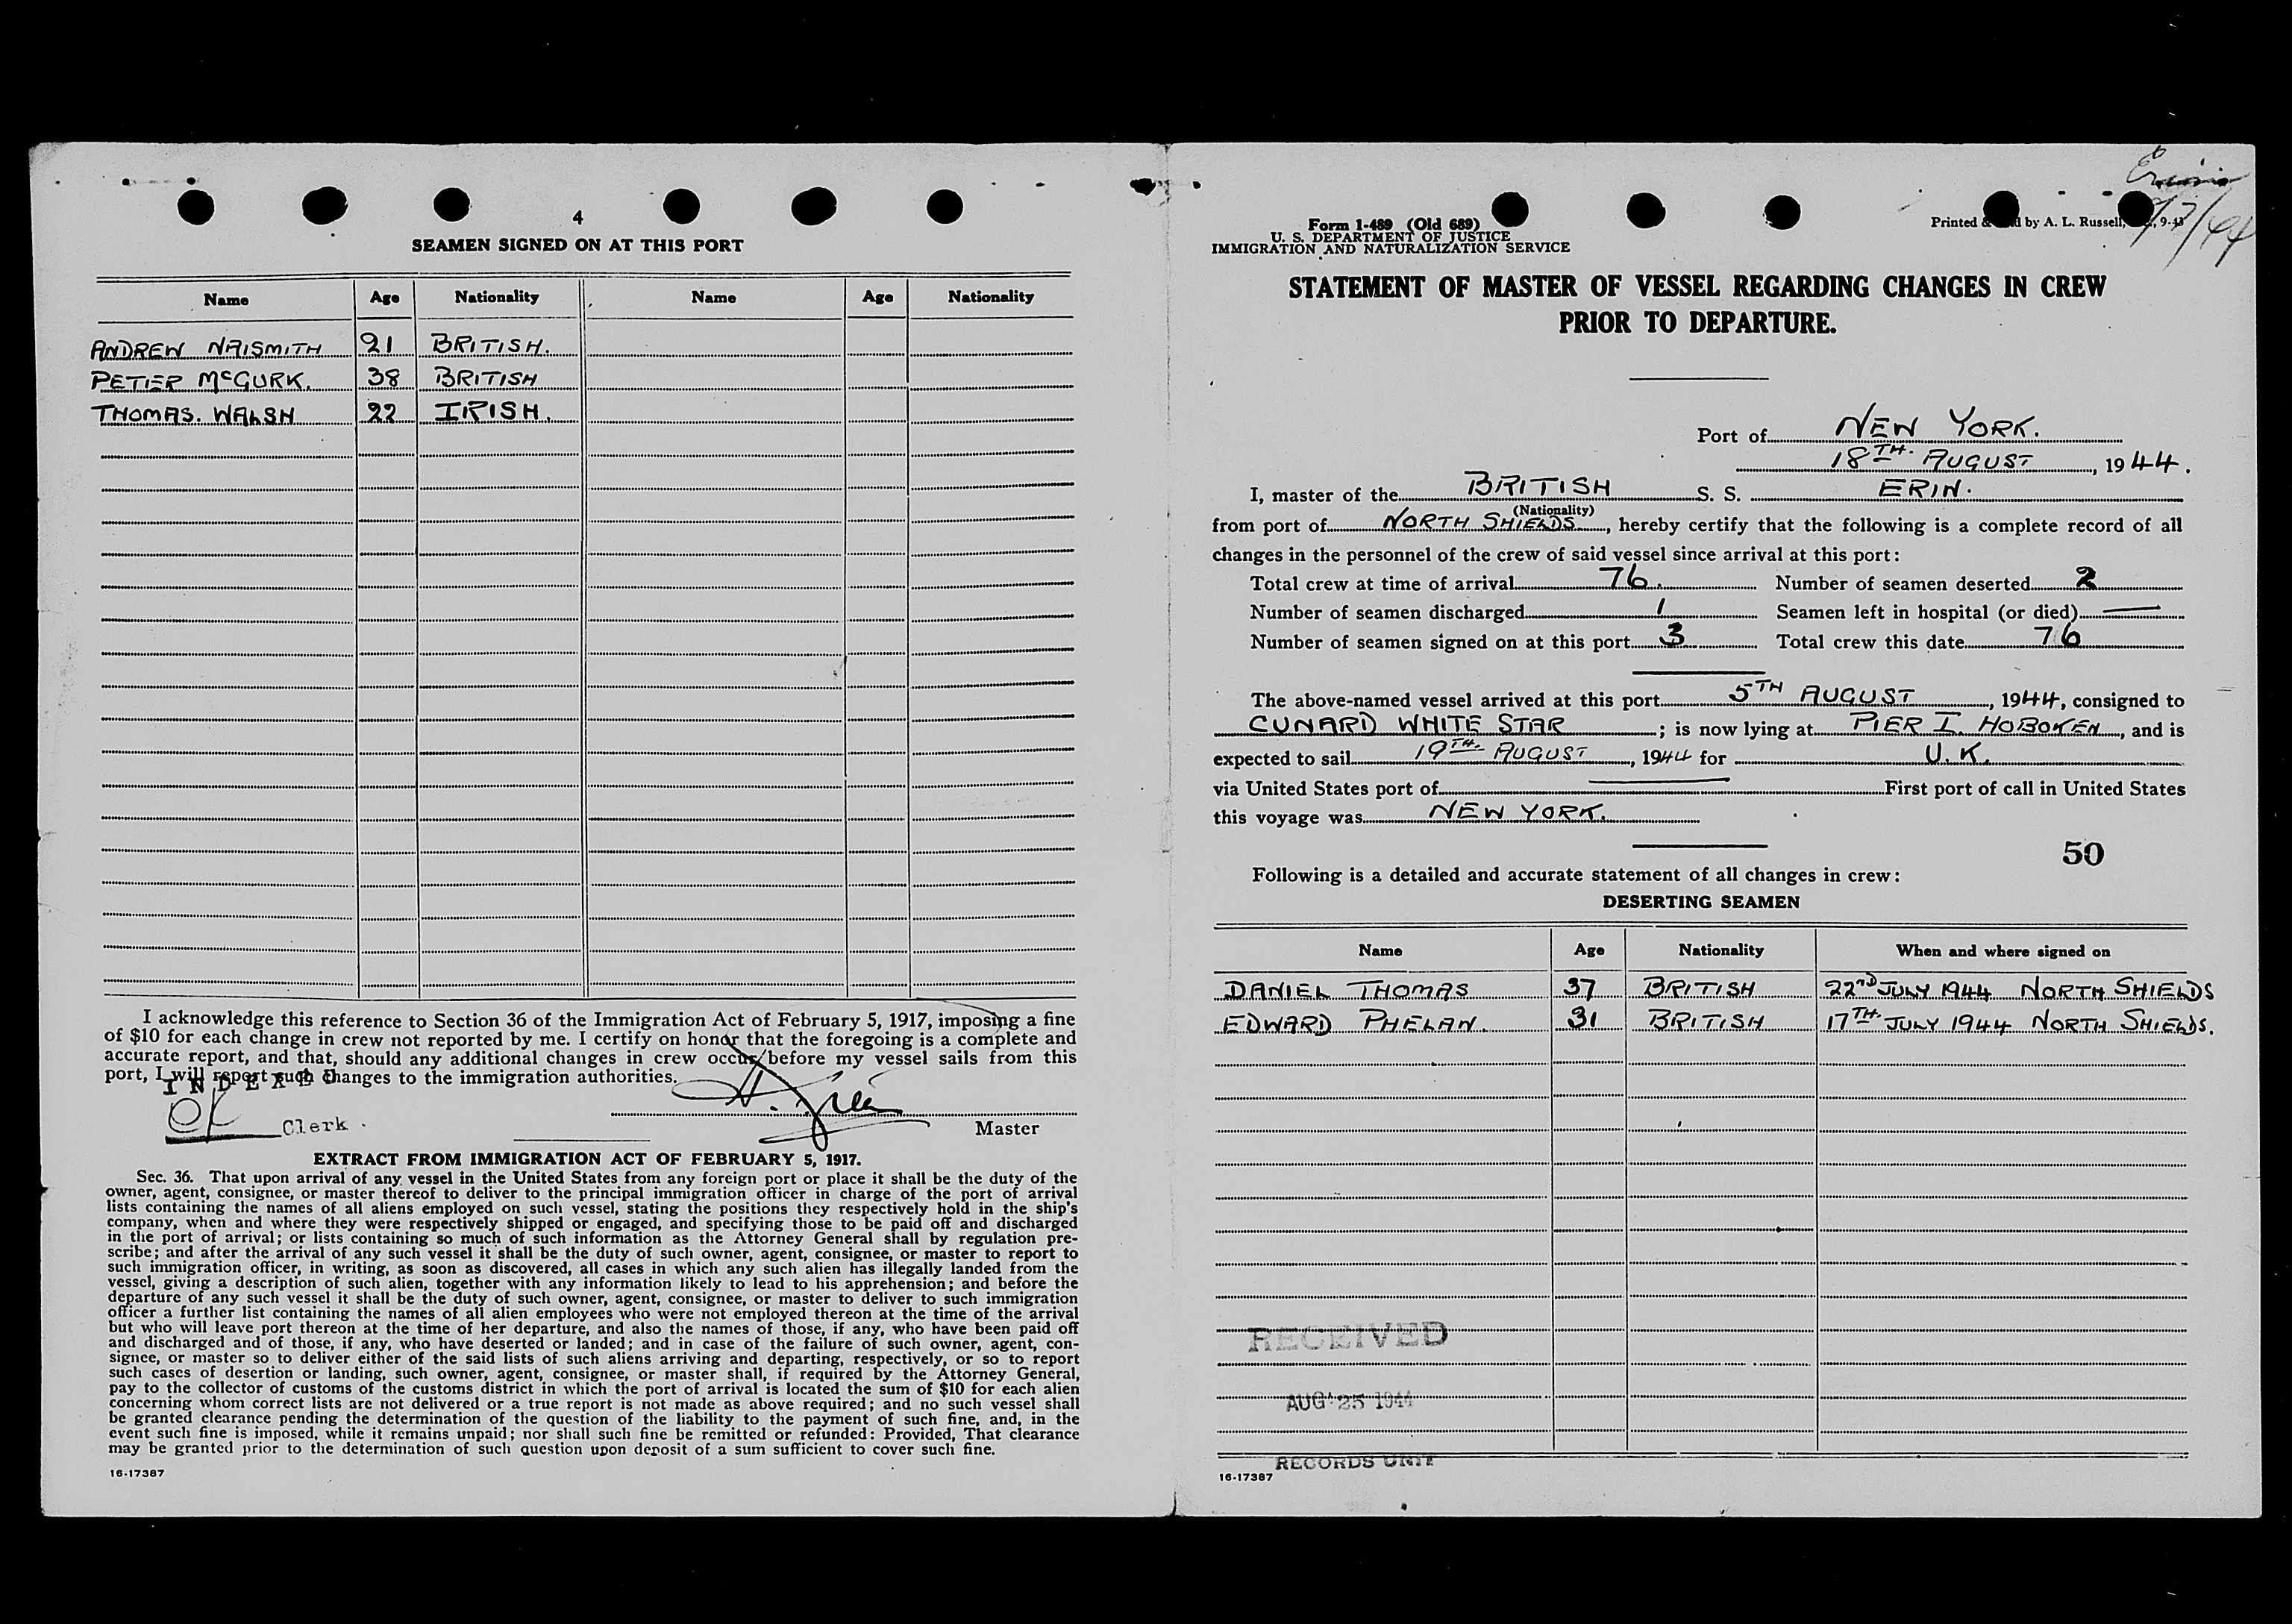 4
SEAMEN SIGNED ON AT THIS PORT
Name Age Nationality Name Age Nationality
ANDREW NAISMITH 21 BRITISH.
PETER McGURK. 38 BRITISH
THOMAS. WALSH 22 IRISH.
I acknowledge this reference to Section 36 of the Immigration Act of February 5, 1917, imposing a fine
of $10 for each change in crew not reported by me. I certify on honor that the foregoing is a complete and
accurate report, and that, should any additional changes in crew occur before my vessel sails from this
port, I will report such changes to the immigration authorities.
INDEXED
OK Clerk
Master
EXTRACT FROM IMMIGRATION ACT OF FEBRUARY 5, 1917.
Sec. 36. That upon arrival of any vessel in the United States from any foreign port or place it shall be the duty of the
owner, agent, consignee, or master thereof to deliver to the principal immigration officer in charge of the port of arrival
lists containing the names of all aliens employed on such vessel, stating the positions they respectively hold in the ship's
company, when and where they were respectively shipped or engaged, and specifying those to be paid off and discharged
in the port of arrival; or lists containing so much of such information as the Attorney General shall by regulation pre-
scribe; and after the arrival of any such vessel it shall be the duty of such owner, agent, consignee, or master to report to
such immigration officer, in writing, as soon as discovered, all cases in which any such alien has illegally landed from the
vessel, giving a description of such alien, together with any information likely to lead to his apprehension; and before the
departure of any such vessel it shall be the duty of such owner, agent, consignee, or master to deliver to such immigration
officer a further list containing the names of all alien employees who were not employed thereon at the time of the arrival
but who will leave port thereon at the time of her departure, and also the names of those, if any, who have been paid off
and discharged and of those, if any, who have deserted or landed; and in case of the failure of such owner, agent, con-
signee, or master so to deliver either of the said lists of such aliens arriving and departing, respectively, or so to report
such cases of desertion or landing, such owner, agent, consignee, or master shall, if required by the Attorney General,
pay to the collector of customs of the customs district in which the port of arrival is located the sum of $10 for each alien
concerning whom correct lists are not delivered or a true report is not made as above required; and no such vessel shall
be granted clearance pending the determination of the question of the liability to the payment of such fine, and, in the
event such fine is imposed, while it remains unpaid; nor shall such fine be remitted or refunded: Provided, That clearance
may be granted prior to the determination of such question upon deposit of a sum sufficient to cover such fine.
16-17387
Form 1-489 (Old 689)
U. S. DEPARTMENT OF JUSTICE
IMMIGRATION AND NATURALIZATION SERVICE
Printed by A. L. Russell, 9-43
STATEMENT OF MASTER OF VESSEL REGARDING CHANGES IN CREW
PRIOR TO DEPARTURE.
Port of NEW YORK.
18TH. AUGUST, 1944.
I, master of the BRITISH S. S. ERIN.
(Nationality)
from port of NORTH SHIELDS, hereby certify that the following is a complete record of all
changes in the personnel of the crew of said vessel since arrival at this port:
Total crew at time of arrival 76. Number of seamen deserted 2
Number of seamen discharged 1 Seamen left in hospital (or died) —
Number of seamen signed on at this port 3 Total crew this date 76
The above-named vessel arrived at this port 5TH AUGUST, 1944, consigned to
CUNARD WHITE STAR; is now lying at PIER I. HOBOKEN, and is
expected to sail 19TH. AUGUST, 1944 for U.K.
via United States port of — First port of call in United States
this voyage was NEW YORK.
50
Following is a detailed and accurate statement of all changes in crew:
DESERTING SEAMEN
Name Age Nationality When and where signed on
DANIEL THOMAS 37 BRITISH 22ND JULY 1944 NORTH SHIELDS
EDWARD PHELAN. 31 BRITISH 17TH. JULY 1944 NORTH SHIELDS.
RECEIVED
AUG 25 1944
RECORDS UNIT
16-17387